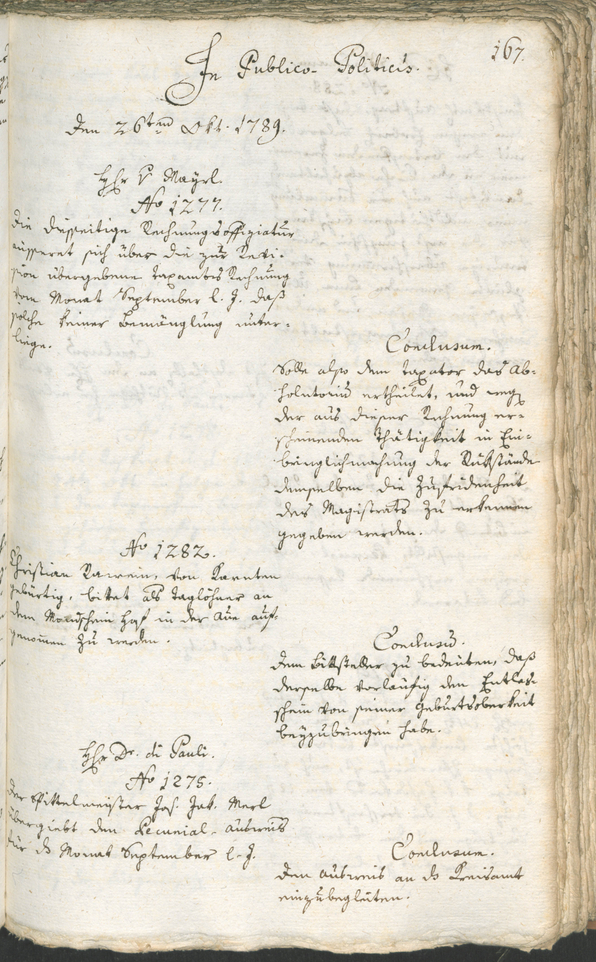 167.
In Publico-Politicis.
Den 26ten Okt. 1789.
Hhr v Mayrl.
No 1277.
Die diesseitige Rechnungsoffiziatur
äusseret sich über die zur Revi-
sion übergebene Taxamts Rechnung
vom Monat September l. J. daß
solche keiner Bemänglung unter-
liege.
Conclusum.
Solle also dem Taxator das Ab-
solutorium ertheilet, und weg
der aus dieser Rechnung er-
scheinenden Thätigkeit in Ein-
bringlichmachung der Rükstände
demselben die Zufridenheit
des Magistrats zu erkennen
gegeben werden.
No 1282.
Christian, von Kärnten
gebürtig, bittet als Taglöhner an
dem Mondschein Hof in der Aue auf-
genommen zu werden.
Conclusū.
Dem Bittsteller zu bedeuten, daß
derselbe vorläufig den Entlas-
schein von seiner Geburtsoberkeit
beyzubringen habe.
Hhr Dr. di Pauli.
No 1275.
Der Spittelmeister Jos. Jak. Merl
übergiebt den Pecunial-Ausweis
für ds Monat September l. J.
Conclusum.
Den Ausweis an ds Kreisamt
einzubegleiten.